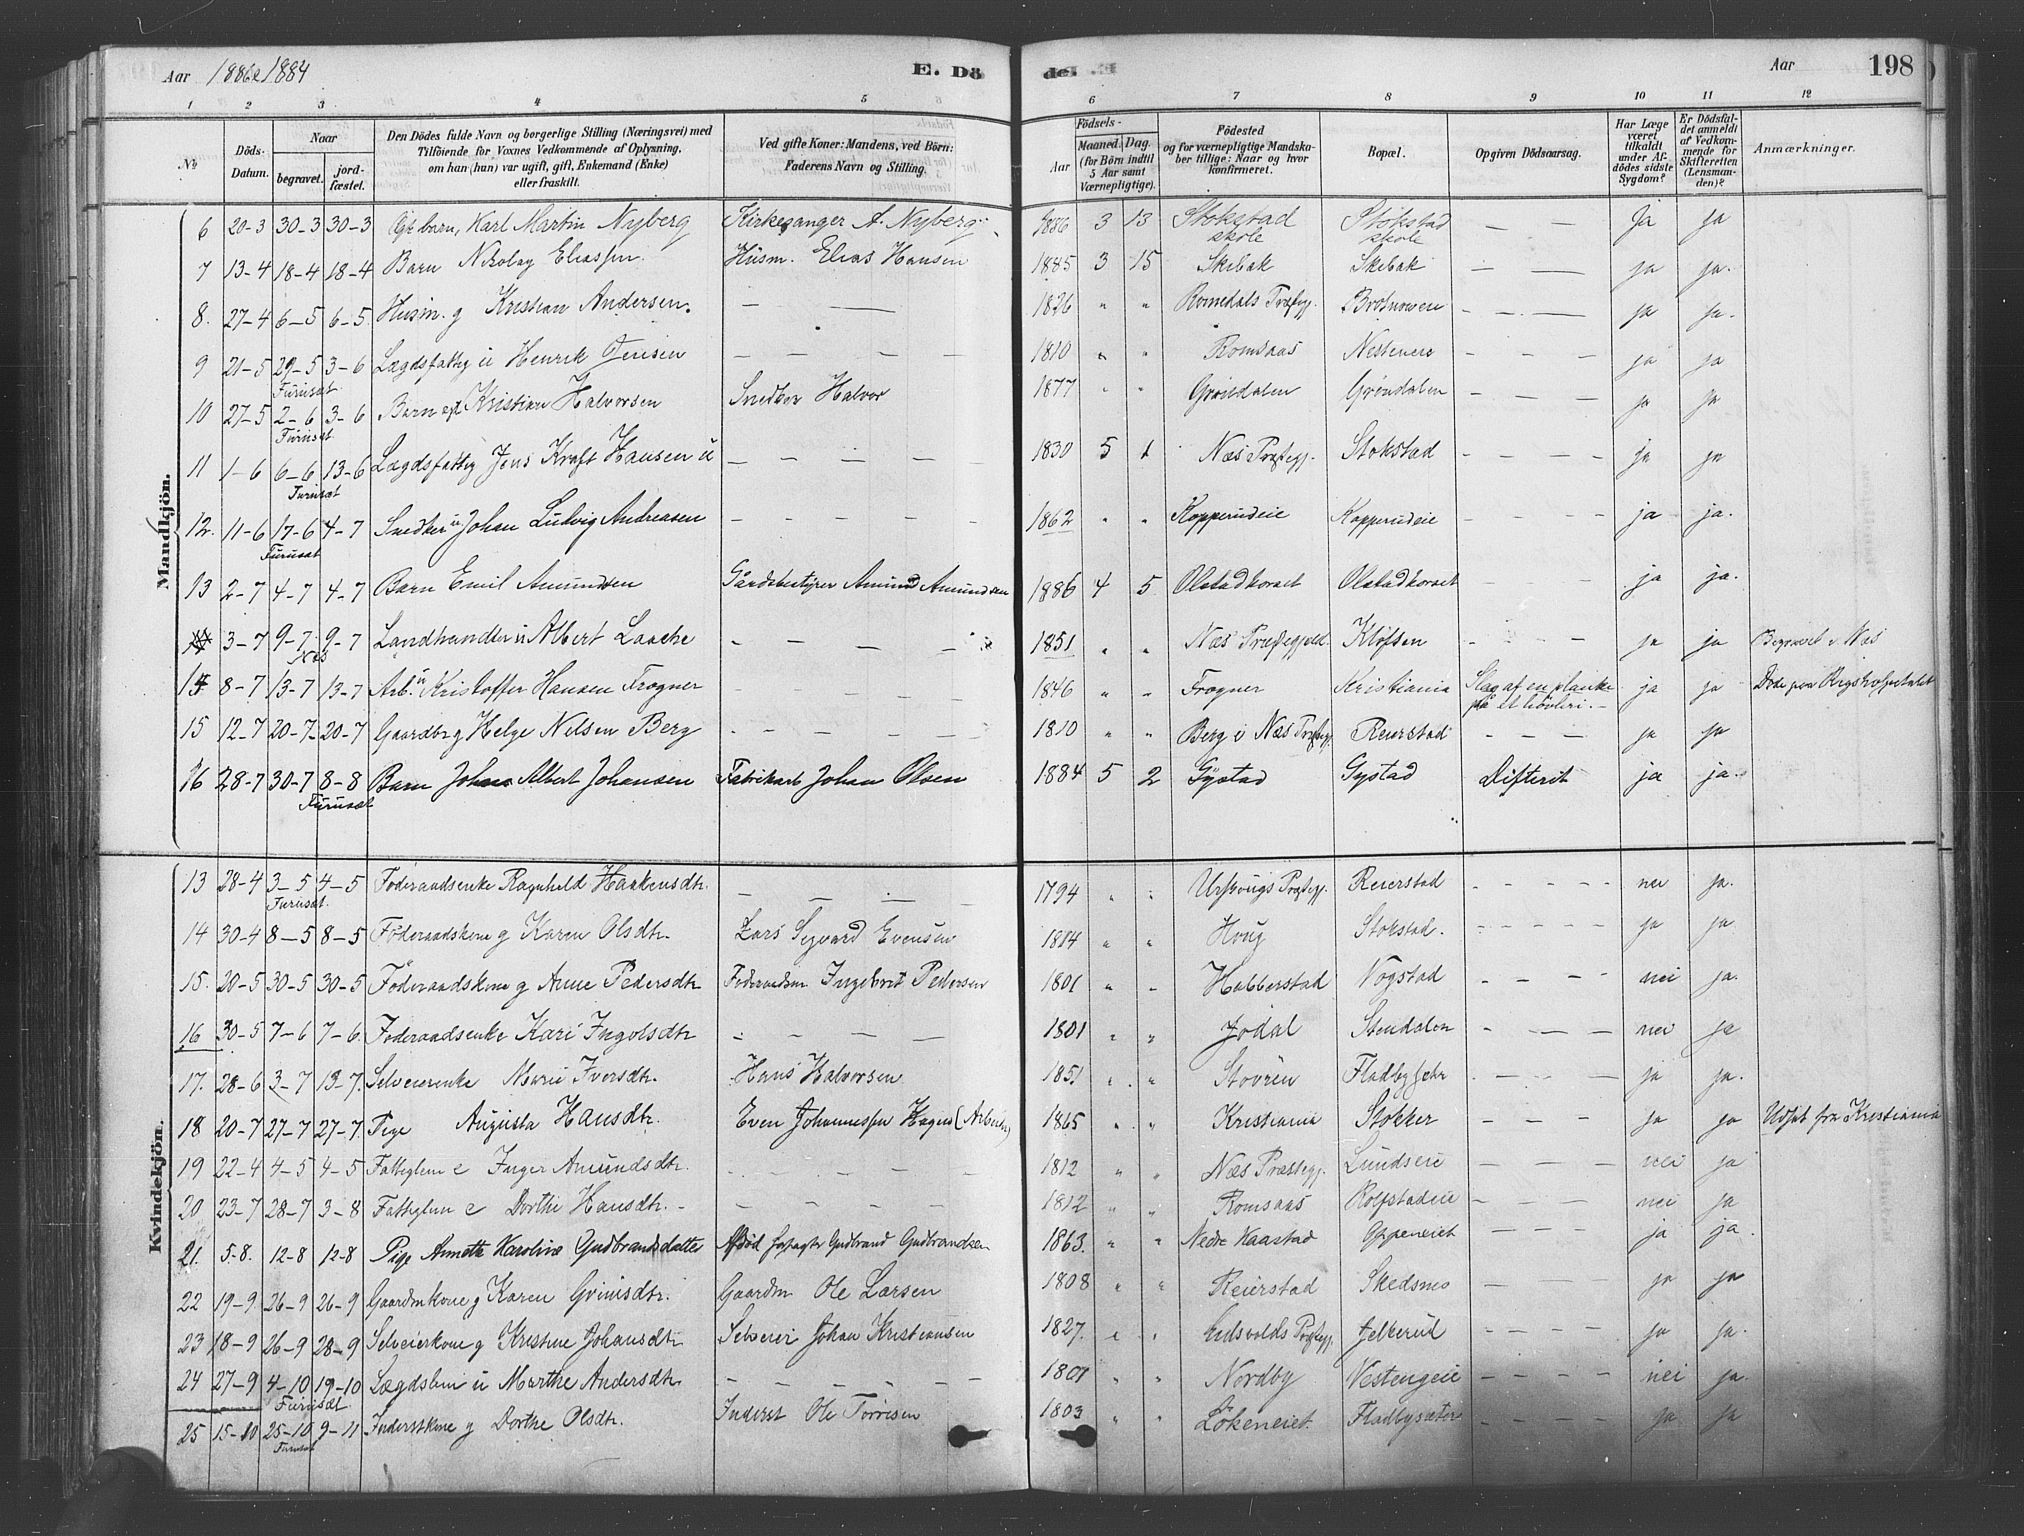 Aar 1886 1884 E. Döde. Aar 198
1 2 3 4 5 6 7 8 9 10 11 12
No. Döds-Datum. Naar begravet. jordfæstet. Den Dödes fulde Navn og borgerlige Stilling (Næringsvei) med Tilföiende for Voxnes Vedkommende af Oplysning, om han (hun) var ugift, gift, Enkemand (Enke) eller fraskilt. Ved gifte Koner: Mandens, ved Börn: Faderens Navn og Stilling. Födsels- Aar Maaned. Dag. (for Börn indtil 5 Aar samt Værnepligtige). Födested og for værnepligtige Mandskaber tillige: Naar og hvor konfirmeret. Bopæl. Opgiven Dödsaarsag. Har Læge været tilkaldt under Afdödes sidste Sygdom? Er Dödsfaldet anmeldt af Vedkommende for Skifteretten (Lensmanden)? Anmærkninger.
Mandkjön.
6 20-3 30-3 30-3 Ægte barn, Karl Martin Nyberg Kirkesanger A. Nyberg 1886 3 13 Stokstad skole Stokstad skole — — Ja ja
7 13-4 18-4 18-4 Barn Nikolay Eliassen Husm. Elias Hansen 1885 3 15 Skibak Skibak — — ja ja.
8. 27-4 6-5 6-5 Husm. g Kristian Andersen. — — 1826 " " Romedals Præstegj. Brotnoween — — — ja ja.
9 21-5 29-5 3-6 Lægdsfattig u Henrik Jensen — — — — 1810 " " Romsaas Nestenere — — — ja ja
Furuset
10 27-5 2-6 3-6 Barn egt Kristian Halvorsen Snedker Halvor 1877 " " Gröndalen Gröndalen — — — ja ja
Furuset
11 1-6 6-6 13-6 Lægdsfattig Jens Kraft Hansen u — — — — 1830 5 1 Næs Præstegj. Stokstad — — — ja ja
Furuset
12. 11-6 17-6 4-7 Snedker u Johan Ludvig Andreasen — — — — 1862 " " Kopperudeie Kopperudeie — — — — ja ja.
Furuset
13 2-7 4-7 4-7 Barn Emil Amundsen Gårdsbestyrer Amund Amundsen 1886 4 5 Olstadkorset Olstadkorset — — — ja ja.
14 3-7 9-7 9-7 Landhandler u Albert Laache — — — — 1851 " " Næs Præstegjeld Kløften — — — ja ja Begravet i Næs
Næs
14 8-7 13-7 13-7 Arb. u Kristoffer Hansen Frogner — — — — 1846 " " Frogner Kristiania Slag af en planke på et høvleri. — ja ja Døde paa Rigshospitalet
15 12-7 20-7 20-7 Gaardbr g Helge Nilsen Berg — — — — — 1810 " " Berg i Næs Præstegj. Reierstad — — — ja ja
16 28-7 30-7 8-8 Barn Johan Albert Johansen Fabrikarb Johan Olsen 1884 5 2 Gystad Gystad Difterit ja ja.
Furuset
Kvindekjön.
13 28-4 3-5 4-5 Föderaadsenke Ragnhild Haakensdtr. — — — — 1794 " " Urskougs Præstegj. Reierstad — — — — nei ja.
Furuset.
14 30-4 8-5 8-5 Föderaadskone g Karen Olsdtr. Lars Sigvard Evensen 1814 " " Houg Stokstad. — — — — ja ja
15. 20-5 30-5 30-5 Föderaadskone g Anne Pedersdtr Föderaadsm Ingebret Pedersen 1801 " " Habberstad Nogstad — — — nei ja.
16 30-5 7-6 7-6. Föderaadsenke Kari Ingolsdtr — — — — 1801 " " Jodal Stendalen — — — nei ja
17. 28-6 3-7 13-7. Selveierenke Marie Iversdtr. Hans Halvorsen 1851 " " Stovren Fladbysetr — — — ja ja.
18 20-7 27-7 27-7. Pige Augusta Hansdtr. Even Johannessen Hagen (Arbeider) 1865 " " Kristiania Stokker — — — ja ja Udsat fra Kristiania
19 22-4 4-5 4-5 Fattiglem e Inger Amundsdtr. — — — — 1812 " " Næs Præstegj. Lundseie — — — nei ja
20 23-7 28-7 3-8 Fattiglem e Dorthe Hansdtr. — — — — 1812 " " Romsaas Rolfstadeie — — — nei ja
21. 5-8. 12-8 12-8 Pige Annette Karoline Gudbrandsdatter Afdød Gudbrand Gudbrandsen 1863. " " Nedre Kaastad Oppeneiet — — — ja ja.
22 19-9 26-9 26-9 Gaardmkone g Karen Gvinisdtr. Gaardm Ole Larsen 1808 " " Reierstad Skedsmo — — — ja ja
23 18-9 26-9 28-9 Selveierkone g Kristine Johansdtr Selveier Johan Kristiansen 1827. " " Eidsvolds Præstegj. Jelkerud — — — — ja ja.
24 27-9 4-10 19-10 Lægdslem u Marthe Andersdtr. — — — — — 1801 " " Nordby Vestengeie — — — — nei ja.
Furuset.
25 15-10 25-10 9-11 Inderstkone g Dorthe Olsdtr. Inderst Ole Torrisen 1803 " " Lökeneiet. Fladbysæter — — — — ja ja
Furuset